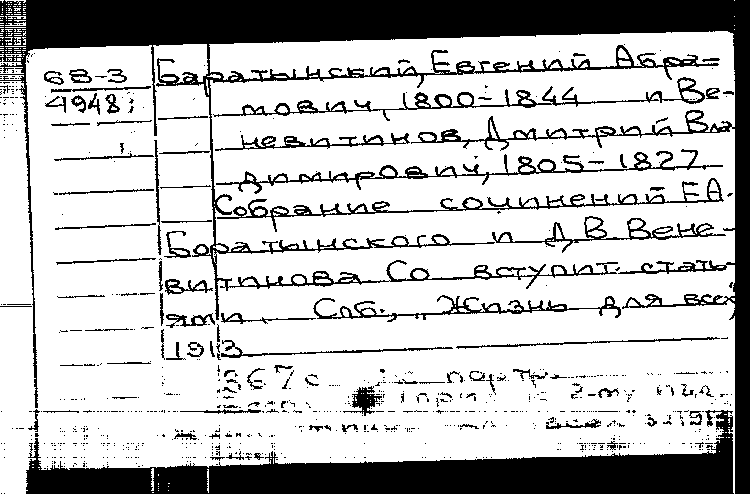 68-3 Баратынский, Евгений Абра=
4948; мович, 1800-1844 и Ве-
невитинов, Дмитрий Вла
димирович, 1805-1827.
Собрание сочинений Е.А.
Боратынского и Д.В. Вене-
витинова Со вступит. стать-
ями. Спб., "Жизнь для всех",
1913
367 с. с портр.
2-му
"всех" 1913